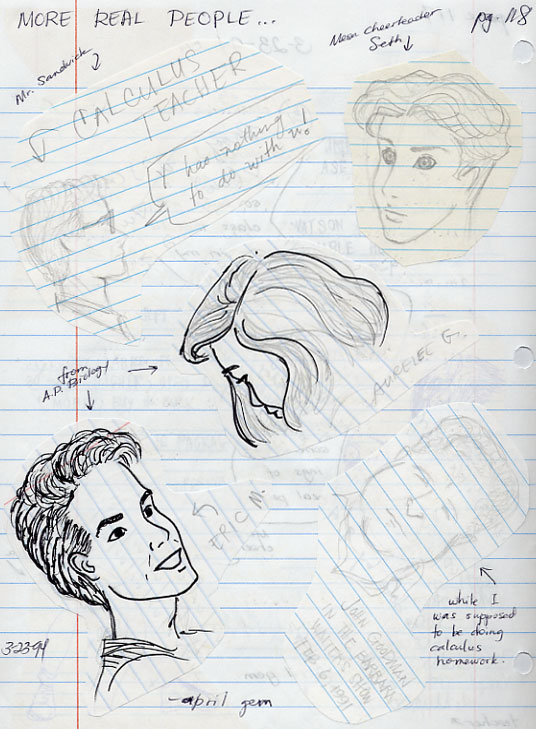 MORE REAL PEOPLE...
pg 118
Mean cheerleader
Seth
Mr. Sandwick
CALCULUS
TEACHER
"I has nothing
to do with u!
from
A.P. Biology
AURELEE G.
ERIC M.
while I
was supposed
to be doing
calculus
homework.
JOHN GOODMAN
IN THE
SHOW
FEB 6 1991
3-23-94
-april gem